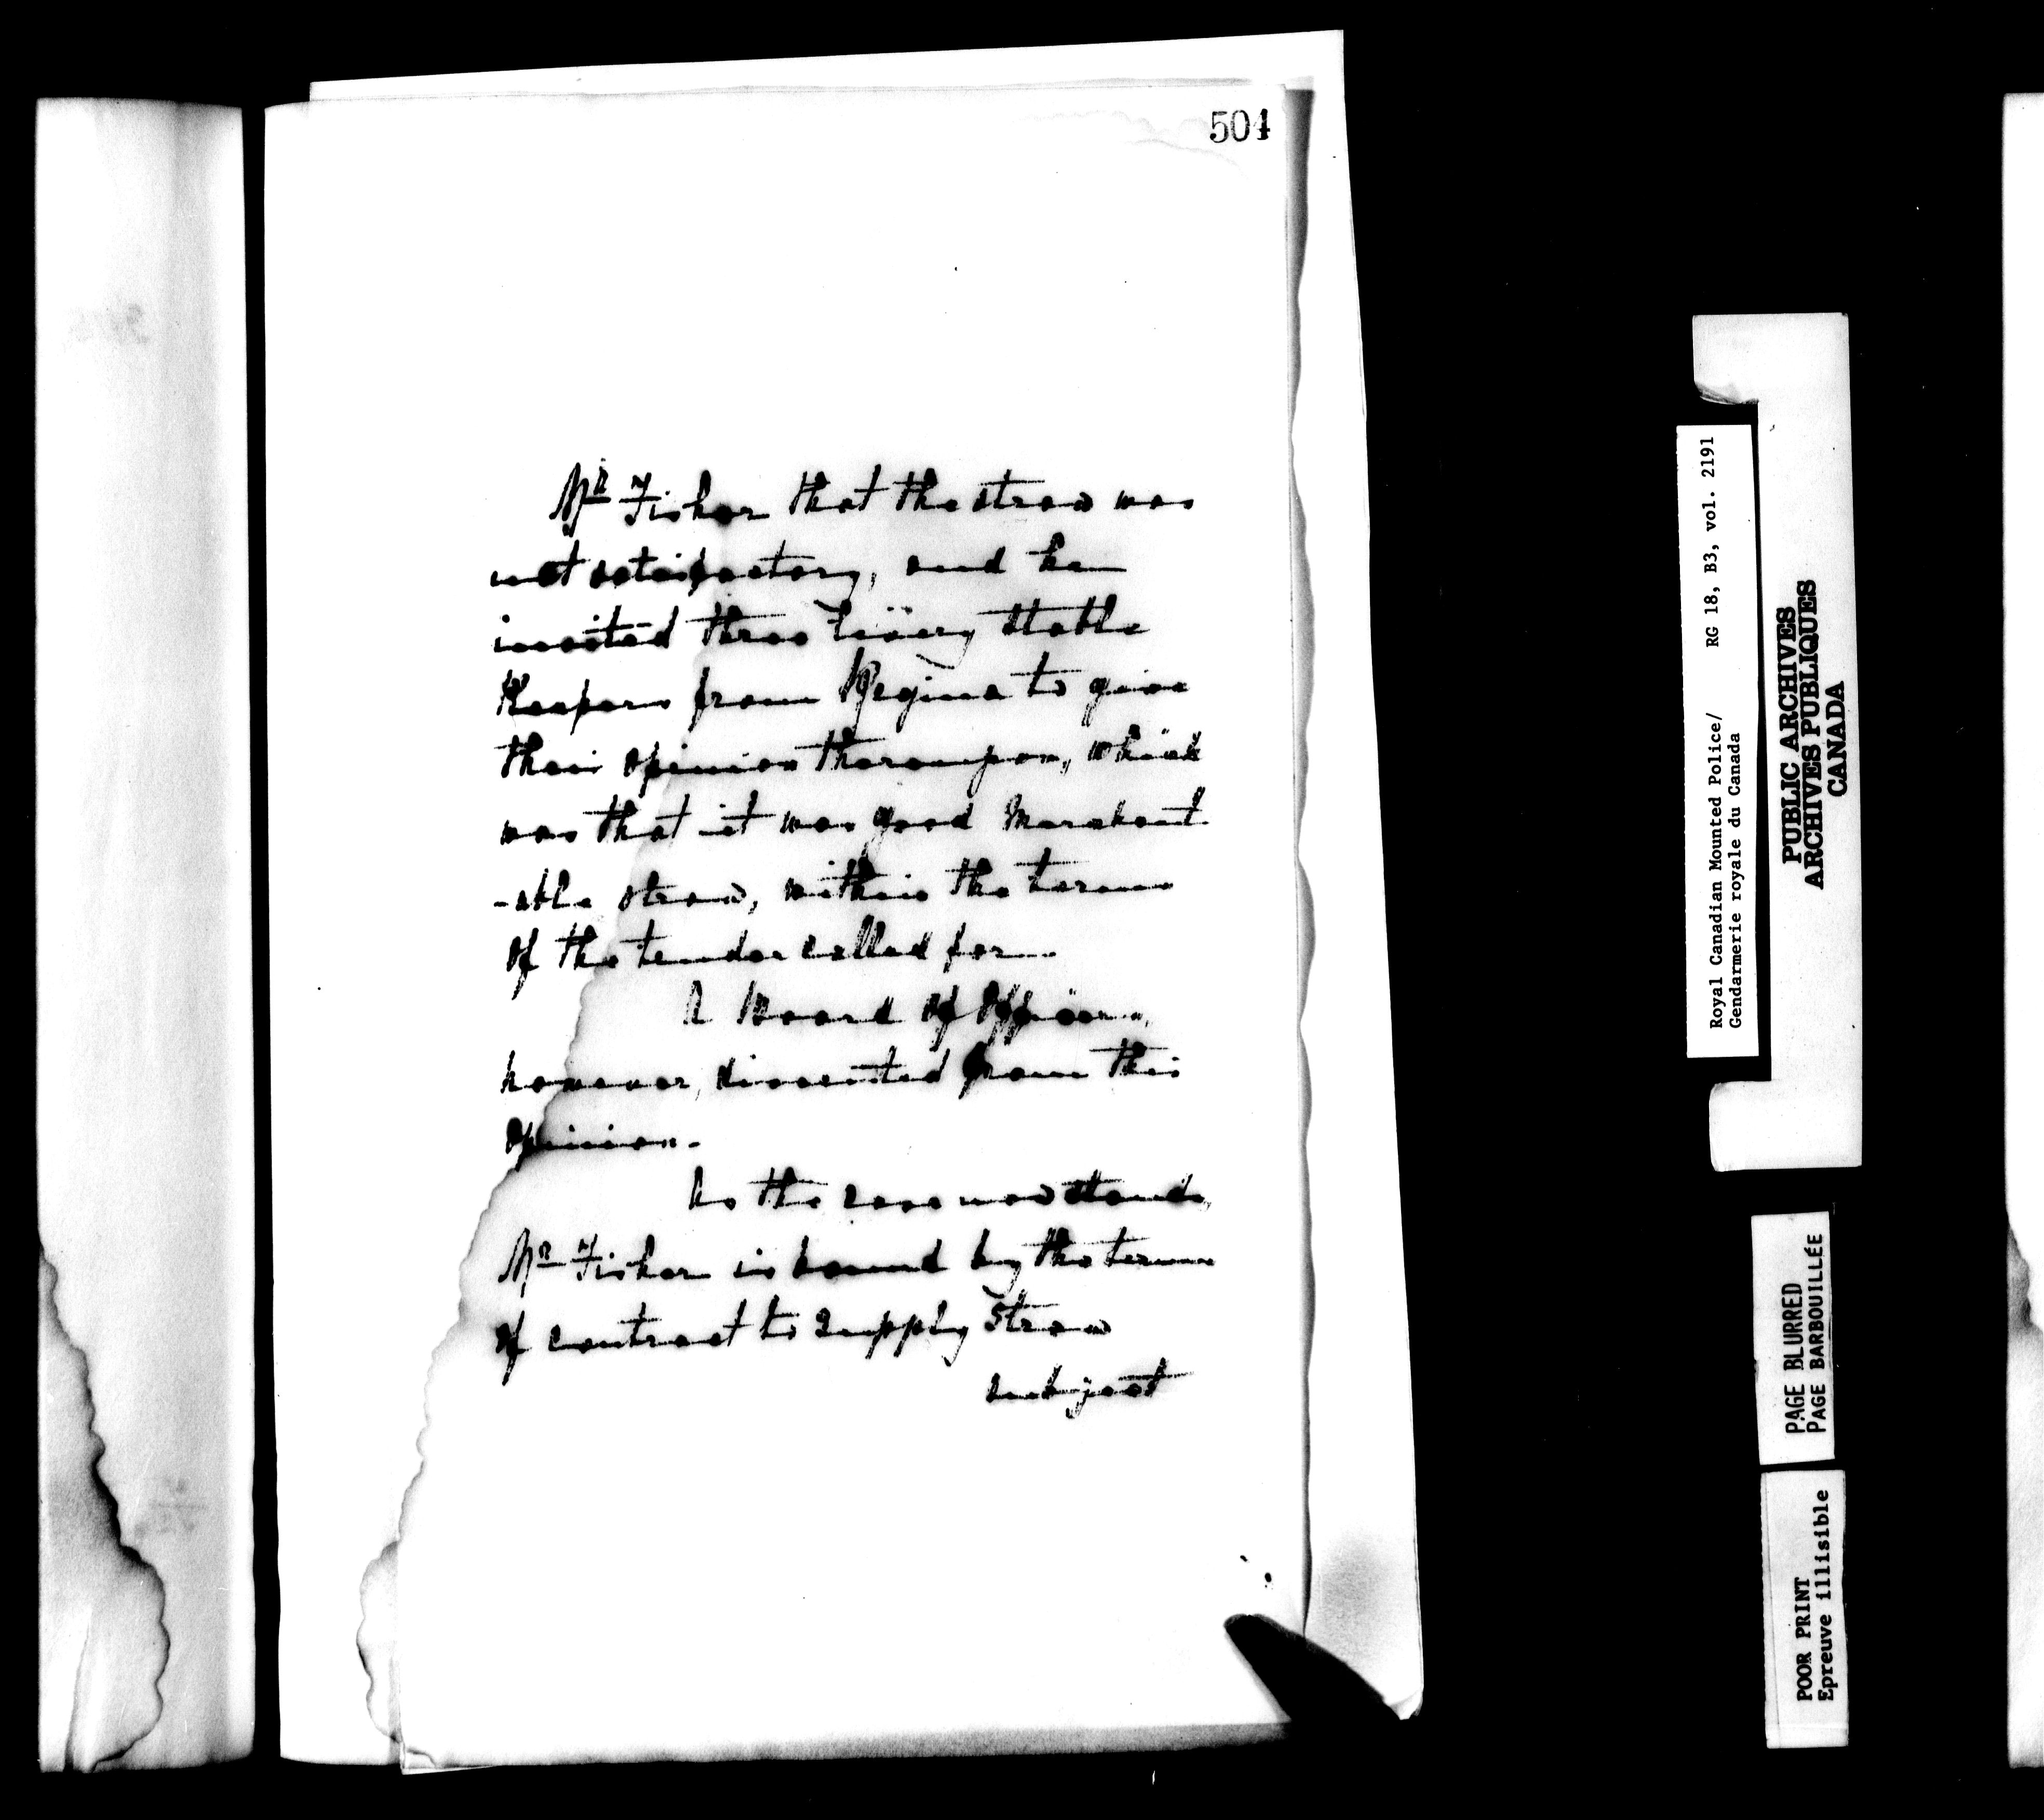 504
Mr Fisher that the straw was
not satisfactory, and he
invited three livery stable
Keepers from Regina to give
their opinion thereupon, which
was that it was good Merchant
-able straw, within the terms
of the tender called for
A Board of Officers,
however, dissented from this
opinion -
As the case now stands,
Mr Fisher is bound by the terms
of contract to supply Straw
subject
Royal Canadian Mounted Police/ RG 18, B3, vol. 2191
Gendarmerie royale du Canada
PUBLIC ARCHIVES
ARCHIVES PUBLIQUES
CANADA
PAGE BLURRED
PAGE BARBOUILLÉE
POOR PRINT
Epreuve illisible